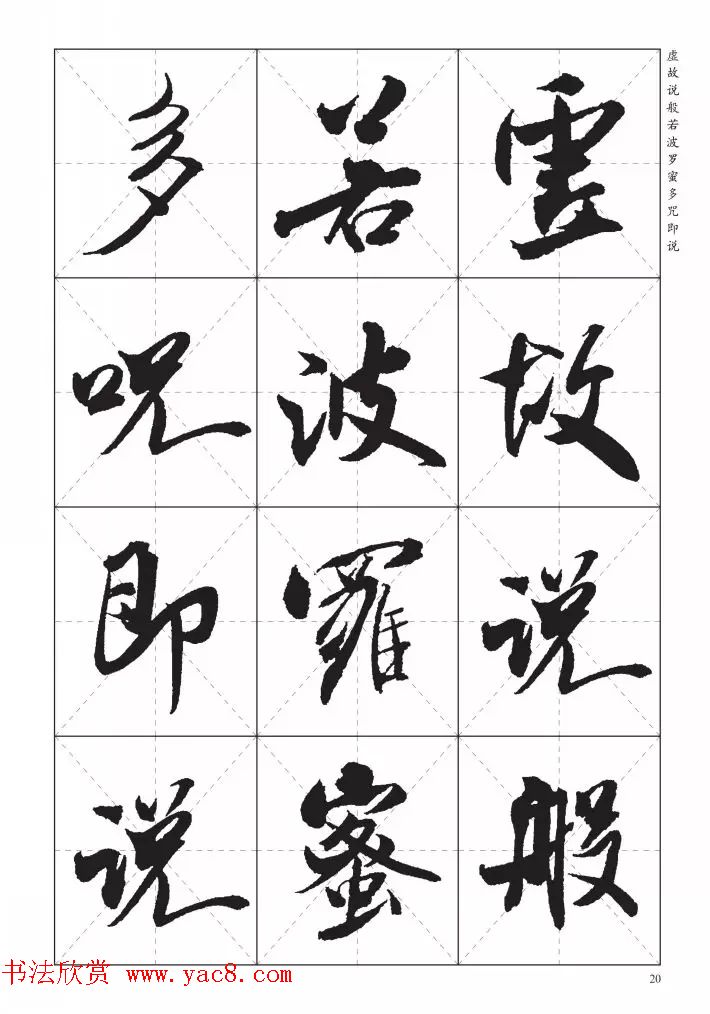 虚故说般若波罗蜜多咒即说
虚故说般
若波羅蜜
多咒即说
20
书法欣赏 www.yac8.com